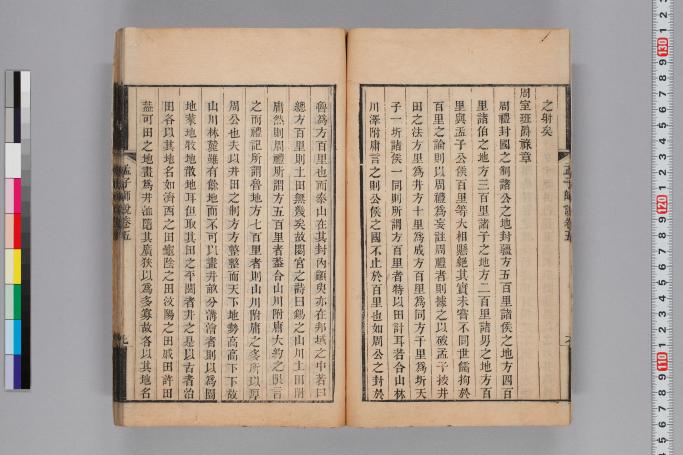 之射矣
周室班爵祿章
周禮封國之制諸公之地封疆方五百里諸侯之地方四百
里諸伯之地方三百里諸子之地方二百里諸男之地方百
里與孟子公侯百里等大相懸絕其實未嘗不同世儒拘於
百里之論則以周禮為妄註周禮者則據之以破孟子按井
田之法方里為井方十里為成方百里為同方千里為圻天
子一圻諸侯一同則所謂方百里者特以田計耳若合山林
川澤附庸言之則公侯之國不止於百里也如周公之封於
孟子師說卷五
魯為方百里也而泰山在其封內顓臾亦在邦域之中若曰
總方百里則土田無幾矣故閟宮之詩曰錫之山川土田附
庸然則周禮所謂方五百里者蓋合山川附庸大約之似言
之而禮記所謂魯地方七百里者則山川附庸之多所以厚
周公也夫以井田之制方方整整而天下地勢高高下下故
山川林麓雖有餘地而不可以畫井畝分溝澮者則以為閒
地萊地牧地散地耳但取其田之平闊者井之是以古者治
田各以其地名如濟西之田龜陰之田汶陽之田戚田許田
蓋可田之地畫為井洫隨其廣狹以為多寡故各以其地名
孟子師說卷五
九